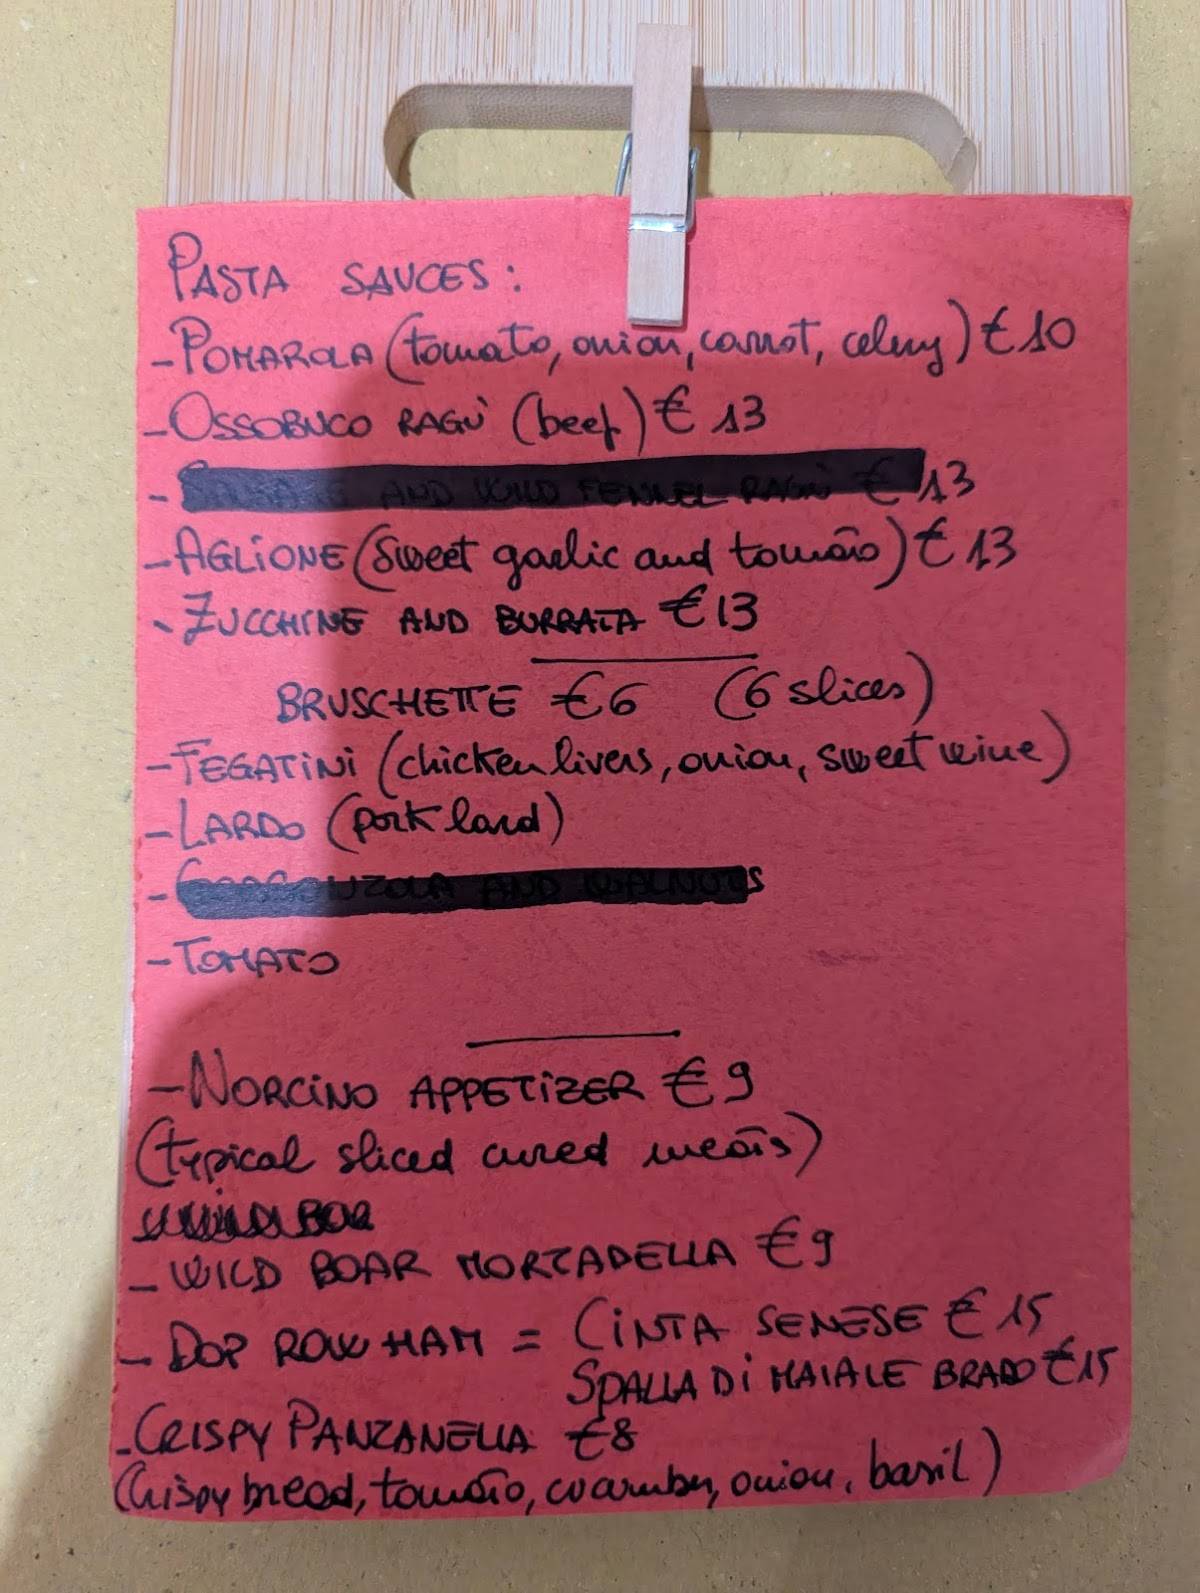 PASTA SAUCES:
-POMAROLA (tomato, onion, carrot, celery) €10
-OSSOBUCO RAGÙ (beef) € 13
- AND WILD FENNEL RAGÙ € 13
-AGLIONE (sweet garlic and tomato) € 13
-ZUCCHINE AND BURRATA €13
BRUSCHETTE €6 (6 slices)
-FEGATINI (chicken livers, onion, sweet wine)
-LARDO (pork lard)
-GORGONZOLA AND WALNUTS
-TOMATO
-NORCINO APPETIZER €9
(typical sliced cured meats)
-WILD BOAR MORTADELLA €9
-DOP ROW HAM = CINTA SENESE € 15
SPALLA DI MAIALE BRADO €15
-CRISPY PANZANELLA €8
(Crispy bread, tomato, cucumber, onion, basil)